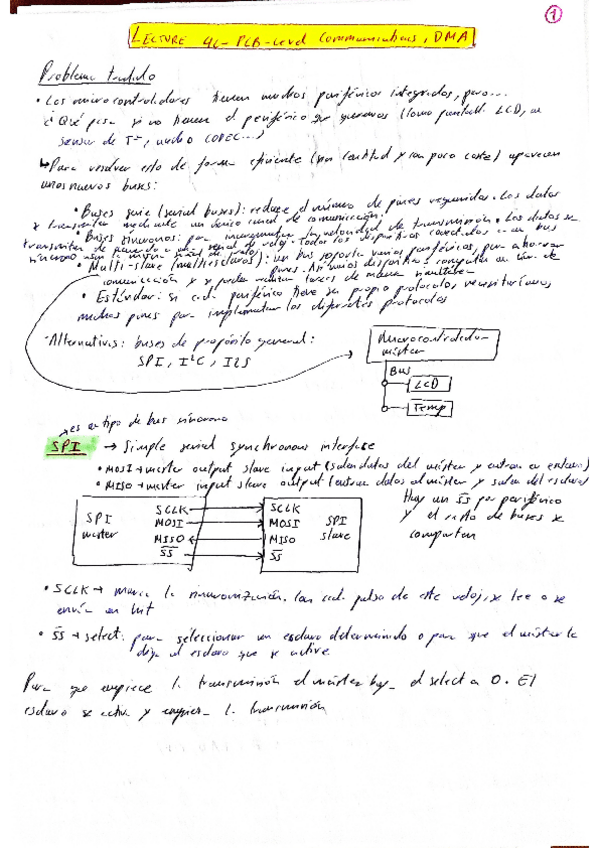 ①
LECTURE 4C - PCB-Level Communications, DMA
Problema
• Los microcontroladores tienen muchos periféricos integrados, pero...
¿Qué pasa si no tienen el periférico que queremos (como pantalla LCD, un
sensor de Tª, audio CODEC...)
↳ Para resolver esto de forma eficiente (con y con poco coste) aparecen
unos nuevos buses:
• Buses serie (serial buses): reduce el número de pines requeridos. Los datos
se transmiten mediante un único canal de comunicación.
• Buses síncronos: para incrementar la velocidad de transmisión. Los datos se
transmiten de a una señal de reloj. Todos los dispositivos conectados a un bus
síncrono usan la misma señal de reloj
• Multi-slave (multiesclavos): un bus soporta varios periféricos, para ahorrar
pines. Así varios dispositivos comparten un de
comunicación y se pueden realizar tareas de manera simultánea
• Estándar: si cada periférico tiene su propio protocolo, necesitaríamos
muchos pines para implementar los diferentes protocolos
-Alternativas: buses de propósito general:
SPI, I²C, I2S
Microcontrolador
máster
Bus
LCD
Temp
→ es un tipo de bus síncrono
SPI → Simple serial synchronous interface
• MOSI → master output slave input (salen datos del máster y entran en esclavo)
• MISO → master input slave output (entran datos al máster y salen del esclavo)
SPI
máster
SCLK
MOSI
MISO
SS
SCLK
MOSI
MISO
SS
SPI
slave
Hay un SS por periférico
y el resto de buses se
comparten
• SCLK → marca la sincronización. Con cada pulso de este reloj, se lee o se
envía un bit
• SS → select: para seleccionar un esclavo determinado o para que el máster le
diga al esclavo que se active
Para que empiece la transmisión el máster baja el select a 0. El
esclavo se activa y empieza la transmisión